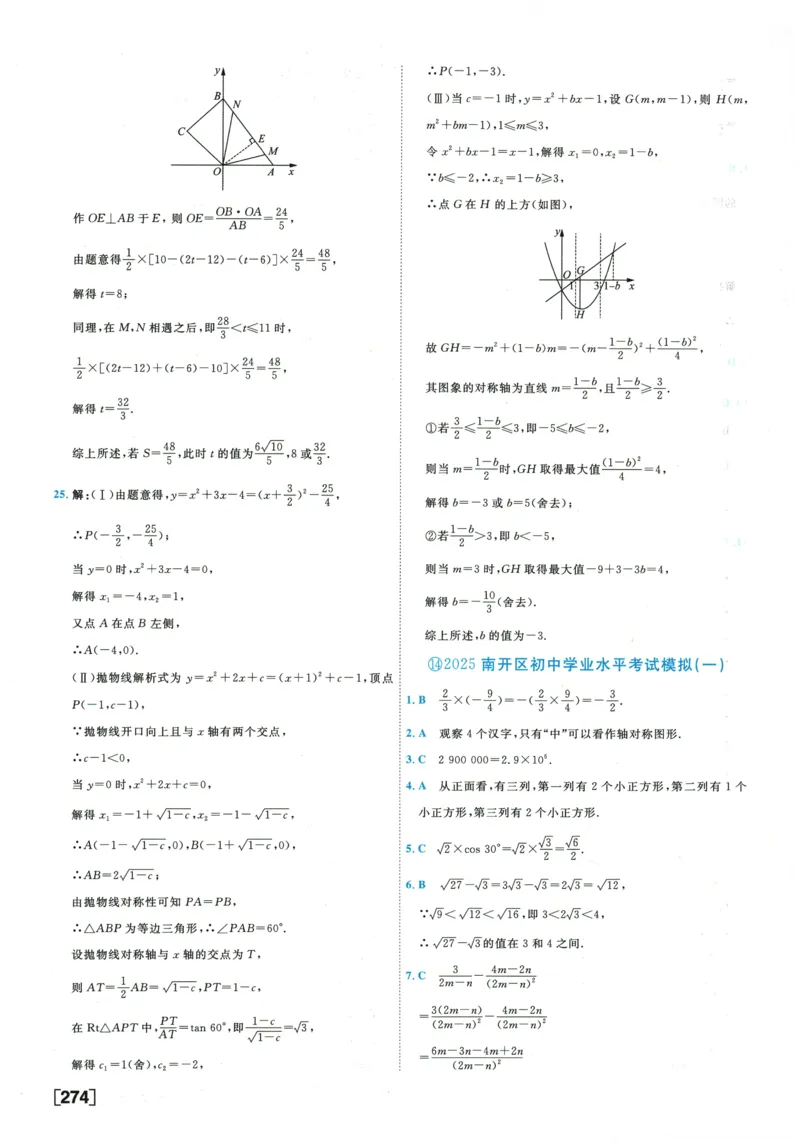 y
B
N
C
E
M
O
A
x
作 OE⊥AB 于 E，则 OE=\frac{OB·OA}{AB}=\frac{24}{5}，
由题意得\frac{1}{2}×[10-(2t-12)-(t-6)]×\frac{24}{5}=\frac{48}{5}，
解得 t=8；
同理，在 M，N 相遇之后，即\frac{28}{3}<t≤11 时，
\frac{1}{2}×[(2t-12)+(t-6)-10]×\frac{24}{5}=\frac{48}{5}，
解得 t=\frac{32}{3}.
综上所述，若 S=\frac{48}{5}，此时 t 的值为\frac{6\sqrt{10}}{5}，8 或\frac{32}{3}.
25. 解：(Ⅰ)由题意得，y=x²+3x-4=(x+\frac{3}{2})²-\frac{25}{4}，
∴P(-\frac{3}{2}，-\frac{25}{4})；
当 y=0 时，x²+3x-4=0，
解得 x₁=-4，x₂=1，
又点 A 在点 B 左侧，
∴A(-4，0).
(Ⅱ)抛物线解析式为 y=x²+2x+c=(x+1)²+c-1，顶点
P(-1，c-1)，
∵抛物线开口向上且与 x 轴有两个交点，
∴c-1<0，
当 y=0 时，x²+2x+c=0，
解得 x₁=-1+\sqrt{1-c}，x₂=-1-\sqrt{1-c}，
∴A(-1-\sqrt{1-c}，0)，B(-1+\sqrt{1-c}，0)，
∴AB=2\sqrt{1-c}；
由抛物线对称性可知 PA=PB，
∴△ABP 为等边三角形，∴∠PAB=60°.
设抛物线对称轴与 x 轴的交点为 T，
则 AT=\frac{1}{2}AB=\sqrt{1-c}，PT=1-c，
在 Rt△APT 中，\frac{PT}{AT}=tan 60°，即\frac{1-c}{\sqrt{1-c}}=\sqrt{3}，
解得 c₁=1(舍)，c₂=-2，
[274]
∴P(-1，-3).
(Ⅲ)当 c=-1 时，y=x²+bx-1，设 G(m，m-1)，则 H(m，
m²+bm-1)，1≤m≤3，
令 x²+bx-1=x-1，解得 x₁=0，x₂=1-b，
∵b≤-2，∴x₂=1-b≥3，
∴点 G 在 H 的上方(如图)，
y
O
G
1
3
1-b
x
H
故 GH=-m²+(1-b)m=-(m-\frac{1-b}{2})²+\frac{(1-b)²}{4}，
其图象的对称轴为直线 m=\frac{1-b}{2}，且\frac{1-b}{2}≥\frac{3}{2}.
①若\frac{3}{2}≤\frac{1-b}{2}≤3，即-5≤b≤-2，
则当 m=\frac{1-b}{2}时，GH 取得最大值\frac{(1-b)²}{4}=4，
解得 b=-3 或 b=5(舍去)；
②若\frac{1-b}{2}>3，即 b<-5，
则当 m=3 时，GH 取得最大值-9+3-3b=4，
解得 b=-\frac{10}{3}(舍去).
综上所述，b 的值为-3.
⑭2025 南开区初中学业水平考试模拟(一)
1. B \frac{2}{3}×(-\frac{9}{4})=-(\frac{2}{3}×\frac{9}{4})=-\frac{3}{2}.
2. A 观察 4 个汉字，只有“中”可以看作轴对称图形.
3. C 2 900 000=2.9×10⁶.
4. A 从正面看，有三列，第一列有 2 个小正方形，第二列有 1 个
小正方形，第三列有 2 个小正方形.
5. C \sqrt{2}×cos 30°=\sqrt{2}×\frac{\sqrt{3}}{2}=\frac{\sqrt{6}}{2}.
6. B \sqrt{27}-\sqrt{3}=3\sqrt{3}-\sqrt{3}=2\sqrt{3}=\sqrt{12}，
∵\sqrt{9}<\sqrt{12}<\sqrt{16}，即 3<2\sqrt{3}<4，
∴\sqrt{27}-\sqrt{3}的值在 3 和 4 之间.
7. C \frac{3}{2m-n}-\frac{4m-2n}{(2m-n)²}
=\frac{3(2m-n)}{(2m-n)²}-\frac{4m-2n}{(2m-n)²}
=\frac{6m-3n-4m+2n}{(2m-n)²}